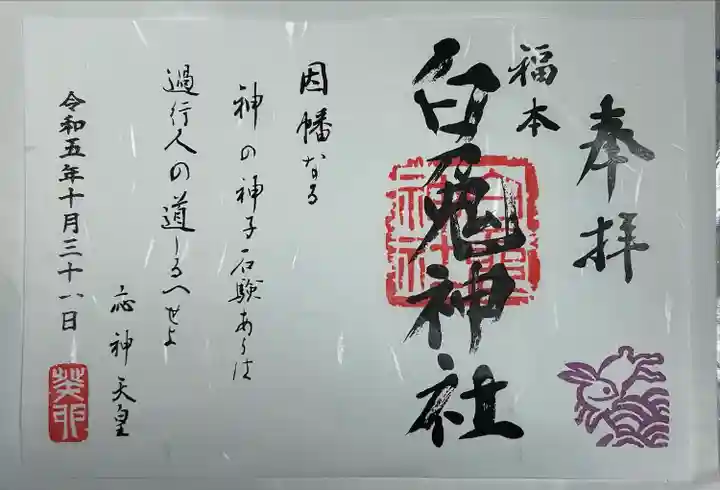 奉拝
福本
白兎神社
因幡なる
神の神子石験あらは
過行人の道しるへせよ
応神天皇
令和五年十月三十一日
癸卯